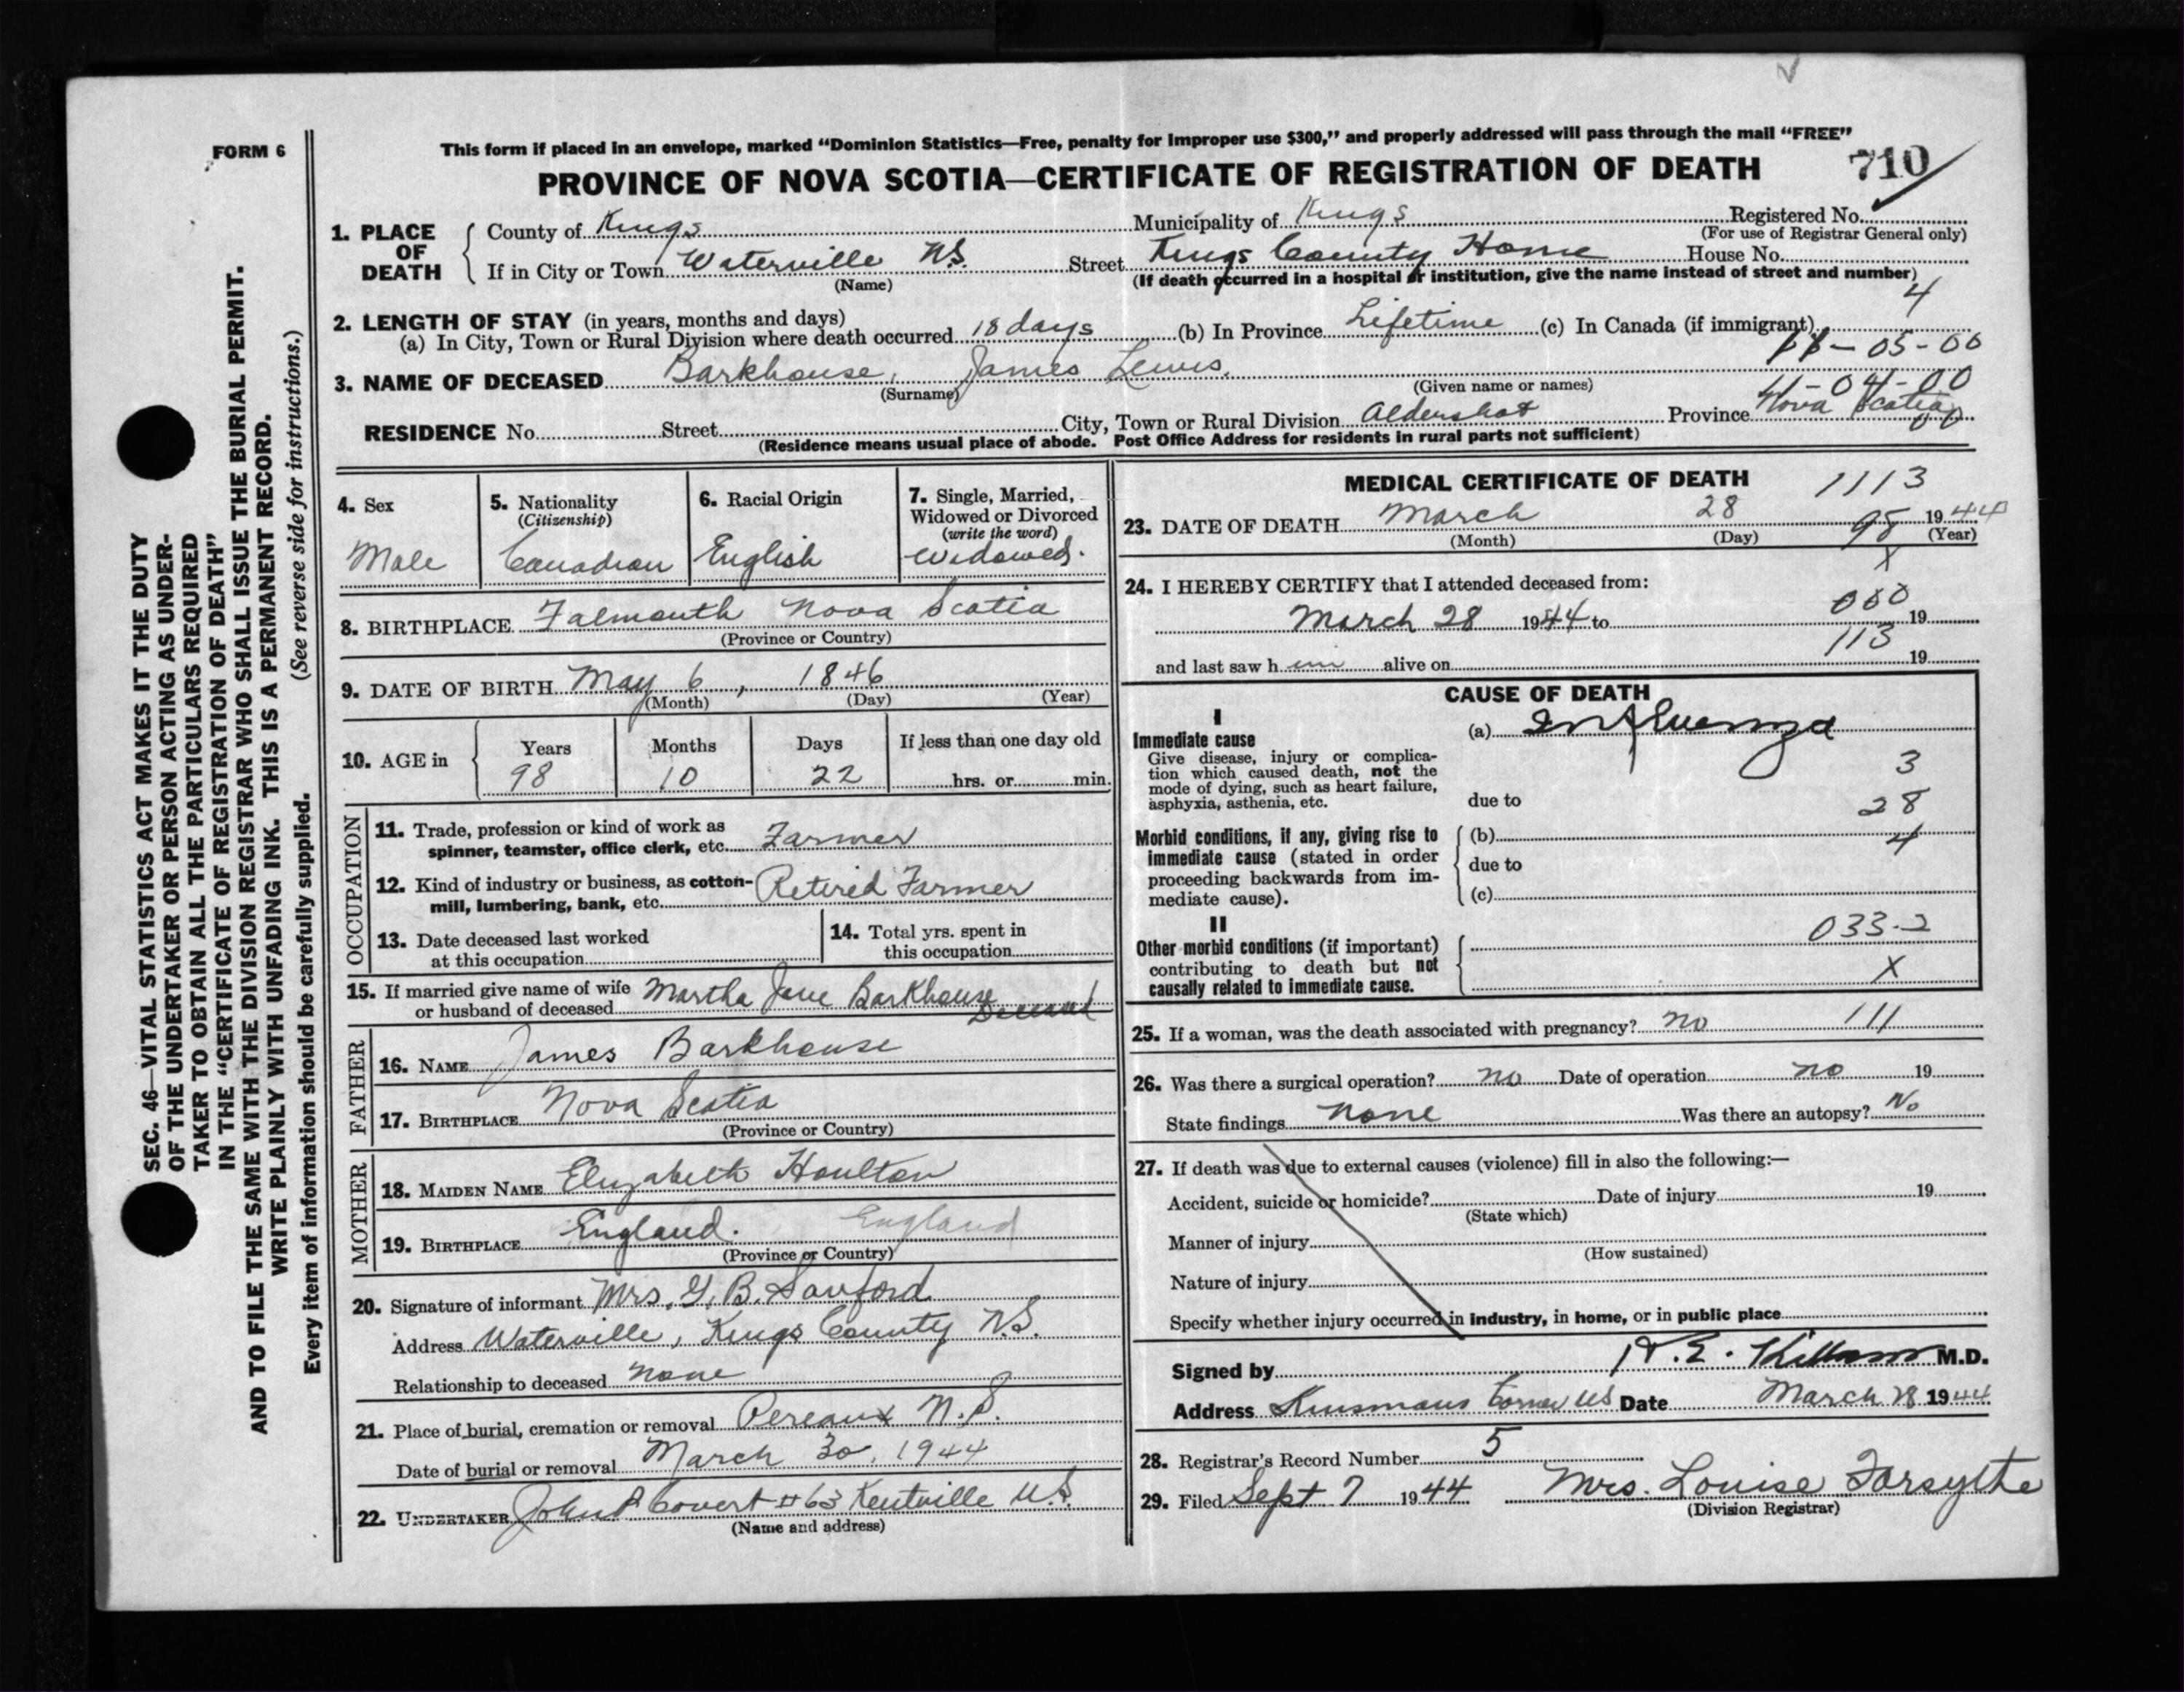 FORM 6
This form if placed in an envelope, marked "Dominion Statistics—Free, penalty for improper use $300," and properly addressed will pass through the mail "FREE"
PROVINCE OF NOVA SCOTIA—CERTIFICATE OF REGISTRATION OF DEATH
710
SEC. 46—VITAL STATISTICS ACT MAKES IT THE DUTY
OF THE UNDERTAKER OR PERSON ACTING AS UNDER-
TAKER TO OBTAIN ALL THE PARTICULARS REQUIRED
IN THE "CERTIFICATE OF REGISTRATION OF DEATH"
AND TO FILE THE SAME WITH THE DIVISION REGISTRAR WHO SHALL ISSUE THE BURIAL PERMIT.
WRITE PLAINLY WITH UNFADING INK. THIS IS A PERMANENT RECORD.
Every item of information should be carefully supplied. (See reverse side for instructions.)
1. PLACE OF DEATH
County of Kings Municipality of Kings Registered No.
(For use of Registrar General only)
If in City or Town Waterville N.S. Street Kings County Home House No.
(Name) (If death occurred in a hospital or institution, give the name instead of street and number)
4
2. LENGTH OF STAY (in years, months and days)
(a) In City, Town or Rural Division where death occurred 18 days (b) In Province Lifetime (c) In Canada (if immigrant)
11-05-00
3. NAME OF DECEASED Barkhouse, James Lewis.
(Surname) (Given name or names)
41-04-00
RESIDENCE No. Street City, Town or Rural Division Aldershot Province Nova Scotia
(Residence means usual place of abode. Post Office Address for residents in rural parts not sufficient)
4. Sex
Male
5. Nationality
(Citizenship)
Canadian
6. Racial Origin
English
7. Single, Married,
Widowed or Divorced
(write the word)
Widowed.
8. BIRTHPLACE Falmouth Nova Scotia
(Province or Country)
9. DATE OF BIRTH May 6, 1846
(Month) (Day) (Year)
10. AGE in
Years Months Days If less than one day old
98 10 22 hrs. or min.
OCCUPATION
11. Trade, profession or kind of work as
spinner, teamster, office clerk, etc. Farmer
12. Kind of industry or business, as cotton-
mill, lumbering, bank, etc. Retired Farmer
13. Date deceased last worked
at this occupation
14. Total yrs. spent in
this occupation
15. If married give name of wife
or husband of deceased Martha Jane Barkhouse
Deceased
FATHER
16. NAME James Barkhouse
17. BIRTHPLACE Nova Scotia
(Province or Country)
MOTHER
18. MAIDEN NAME Elizabeth Houlton
19. BIRTHPLACE England. England
(Province or Country)
20. Signature of informant Mrs. G. B. Sanford
Address Waterville, Kings County N.S.
Relationship to deceased none
21. Place of burial, cremation or removal Pereaux N.S.
Date of burial or removal March 30, 1944
22. UNDERTAKER John P Covert #63 Kentville N.S.
(Name and address)
MEDICAL CERTIFICATE OF DEATH
1113
23. DATE OF DEATH March 28 1944
(Month) (Day) (Year)
98
X
24. I HEREBY CERTIFY that I attended deceased from:
March 28 1944 to 19
000
113
and last saw him alive on 19
CAUSE OF DEATH
I
Immediate cause
Give disease, injury or complica-
tion which caused death, not the
mode of dying, such as heart failure,
asphyxia, asthenia, etc.
(a) Influenza
3
due to
28
Morbid conditions, if any, giving rise to
immediate cause (stated in order
proceeding backwards from im-
mediate cause).
(b)
4
due to
(c)
II
Other morbid conditions (if important)
contributing to death but not
causally related to immediate cause.
033-2
X
25. If a woman, was the death associated with pregnancy? no
111
26. Was there a surgical operation? no Date of operation no 19
State findings none Was there an autopsy? No
27. If death was due to external causes (violence) fill in also the following:—
Accident, suicide or homicide? Date of injury 19
(State which)
Manner of injury
(How sustained)
Nature of injury
Specify whether injury occurred in industry, in home, or in public place
Signed by M.D.
Address Kinsmans Corner NS Date March 28 1944
28. Registrar's Record Number 5
29. Filed Sept 7 1944 Mrs. Louise Forsythe
(Division Registrar)